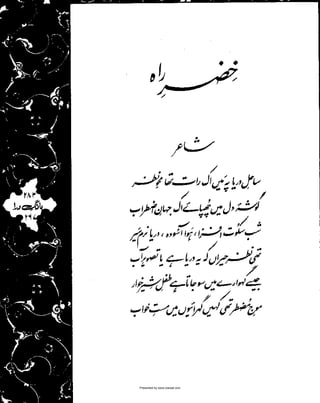 خضرِ راہ
شاعر
ساحلِ دریا پہ میں اک رات تھا محوِ نظر
گوشۂ دل میں چھپائے اک جہانِ اضطراب
شب سکوت افزا، ہوا آسودہ، دریا نرم سیر
تھی نظر حیراں کہ یہ دریا ہے یا تصویرِ آب
جیسے گہوارے میں سو جاتا ہے طفلِ شیر خوار
موجِ مضطر تھی کہیں گہرائیوں میں مستِ خواب
۲۸۳
بانگِ درا
۲۶۷